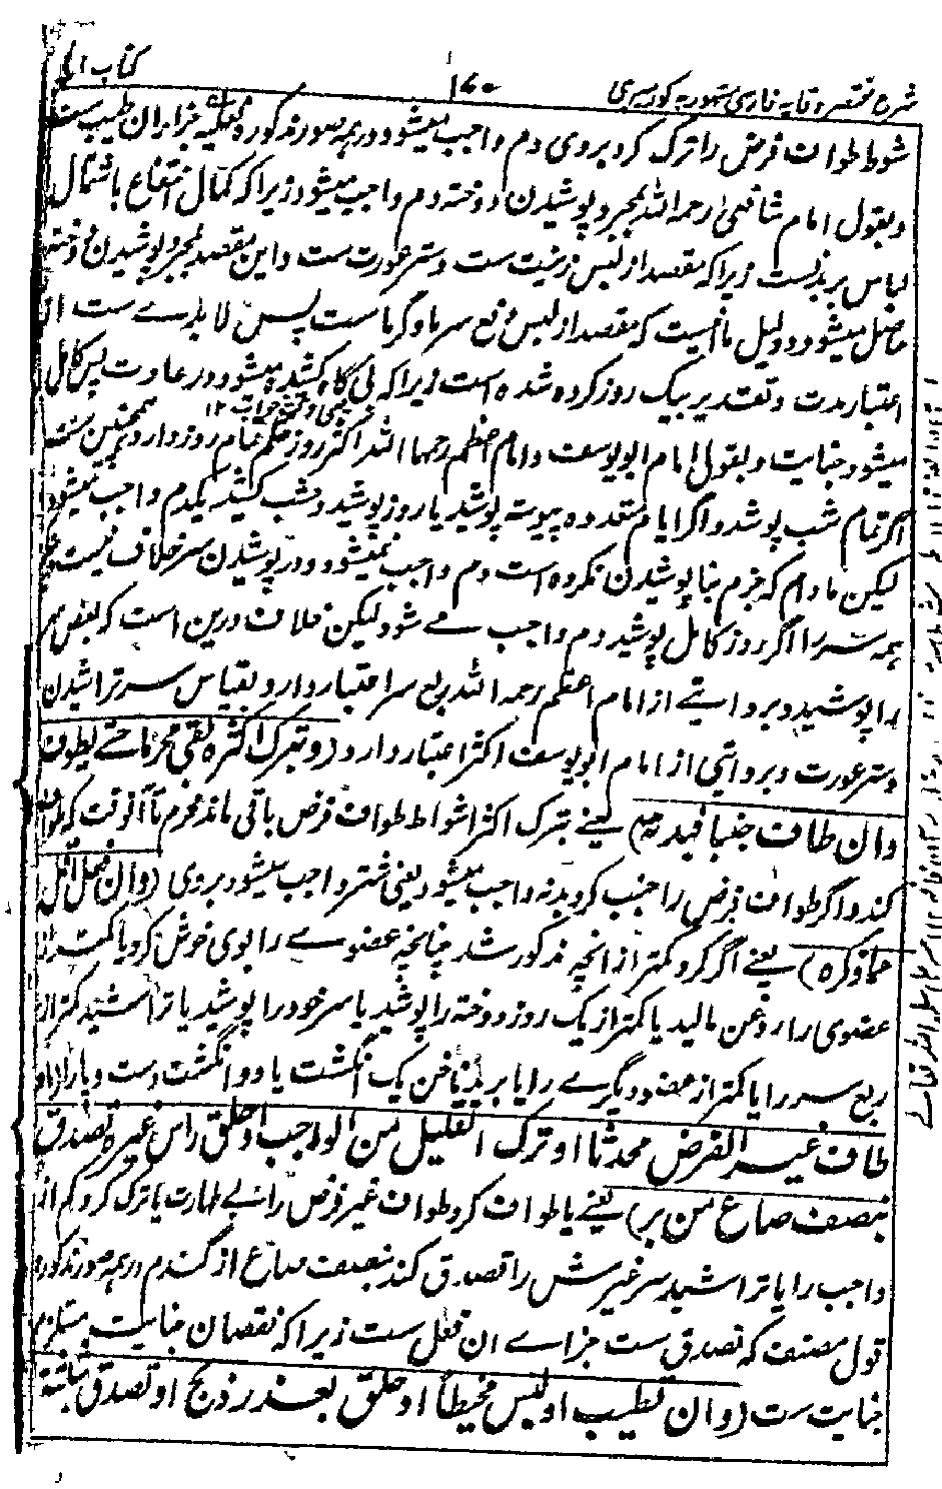 کتاب الحج
۱۷۰
شرح مختصر وقایه فارسی مشهور به کور سیری
شوط طواف فرض را ترک کرد بروی دم واجب میشود و در همه صور مذکوره جزاء ان طیب ست
و بقول امام شافعی رحمه الله بمجرد پوشیدن دوخته دم واجب میشود زیرا که کمال انتفاع باشتمال
لباس بر بدنست زیرا که مقصد از لبس زینت ست و ستر عورت ست و این مقصد بمجرد پوشیدن دوخته
حاصل میشود و دلیل ما اینست که مقصد از لبس دفع سرما و گرماست پس لا بدی ست از
اعتبار مدت و تقدیر بیک روز کرده شده است زیرا که کشیده میشود در عادت پس کامل
میشود جنایت و بقول امام ابو یوسف و امام اعظم رحمها الله اکثر روز حکم تمام روز دارد و همچنین ست
اگر تمام شب پوشد و اگر ایام متعدده پیوسته پوشید یا روز پوشید و شب کشید یکدم واجب میشود
لیکن مادام که جزم بنا پوشیدن نکرده است دم واجب نمیشود و در پوشیدن سر خلاف نیست
همه سر را اگر روز کامل پوشید دم واجب می شود لیکن خلاف درین است که بعض سر
را پوشید و بروایتی از امام اعظم رحمه الله ربع سر اعتبار دارد و بقیاس سر تراشیدن
و ستر عورت و بروایتی از امام ابو یوسف اکثر اعتبار دارد (و بترک اکثره بقی محرما حتی یطوف
وان طاف جنبا فبدنه) یعنے بترک اکثر اشواط طواف فرض باقی ماند محرم تا آنوقت که طواف
کند و اگر طواف فرض را جنب کرد بدنه واجب میشود یعنی شتر واجب میشود بروی (وان فعل اقل
مما ذکره) یعنے اگر کرد کمتر از انچه مذکور شد چنانچه عضوے را بوی خوش کرد یا کمتر از
عضوی را روغن مالید یا کمتر از یک روز دوخته را پوشید یا سر خود را پوشید یا تراشید کمتر از
ربع سر را یا کمتر از عضو دیگرے را یا برید ناخن یک انگشت یا دو انگشت دست و پا را (او
طاف غیر الفرض محدثا او ترک القلیل من الواجب او حلق راس غیره تصدق
بنصف صاع من بر) یعنے یا طواف کرد طواف غیر فرض را بی طهارت یا ترک کرد کم از
واجب را یا تراشید سر غیرش را تصدق کند بنصف صاع از گندم در همه صور مذکوره
قول مصنف که تصدق ست جزاے ان فعل ست زیرا که نقصان جنایت مستلزم
جنایت ست (وان تطیب او لبس مخیطا او حلق بعذر ذبح او تصدق بثلثة